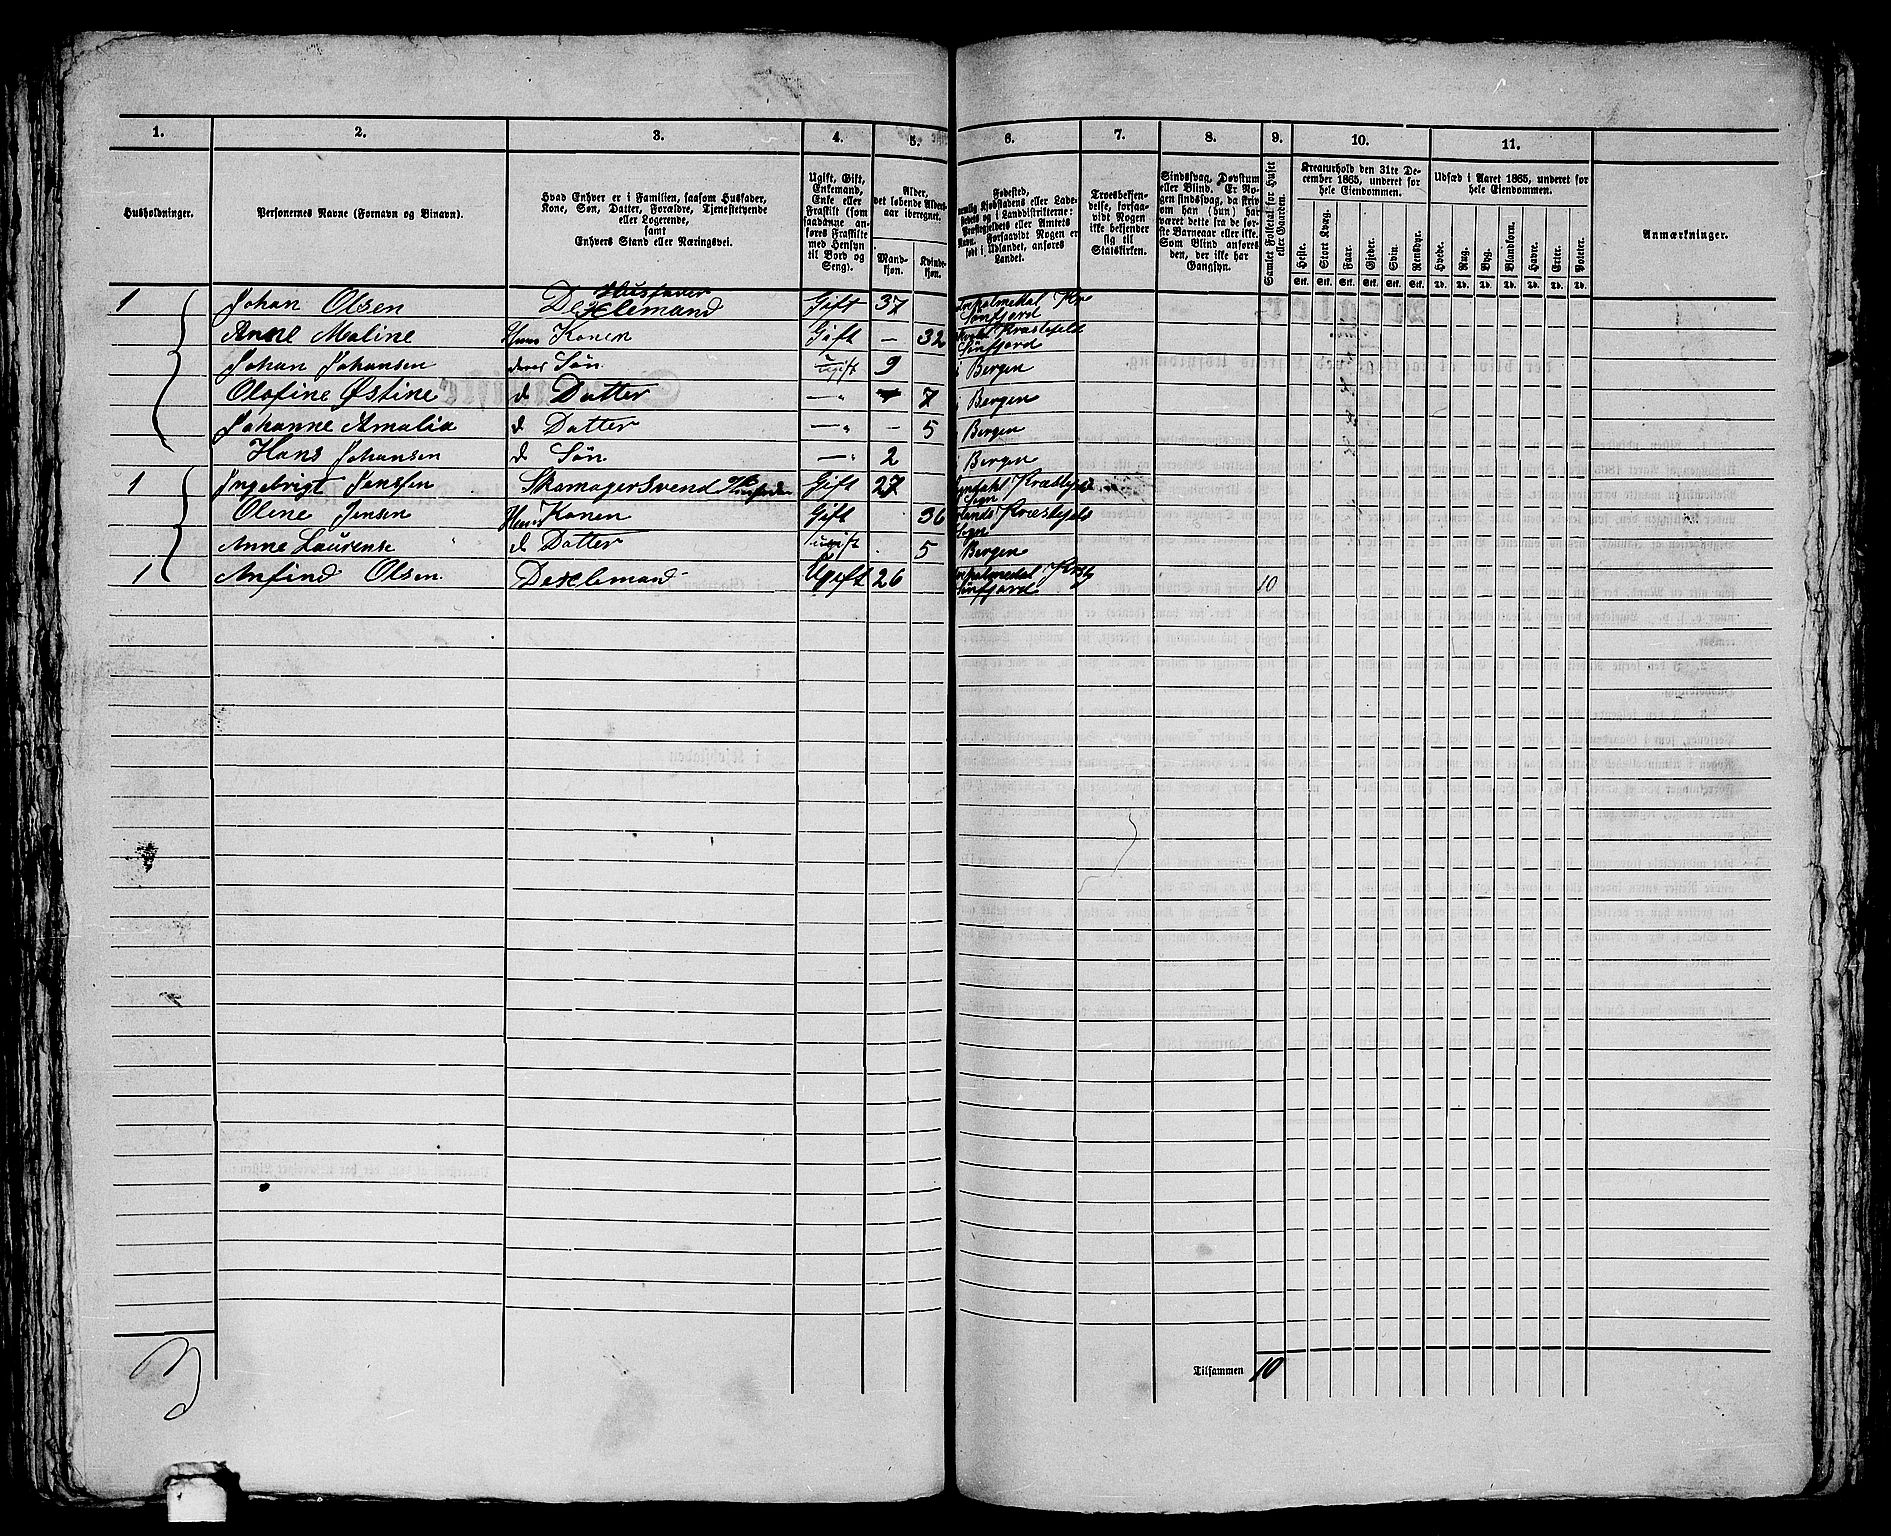 1. 2. 3. 4. 5. 6. 7. 8. 9. 10. 11.
Husholdninger.
Personernes Navne (Fornavn og Binavn).
Hvad Enhver er i Familien, saasom Husfader,
Kone, Søn, Datter, Forældre, Tjenestetyende
eller Logerende,
samt
Enhvers Stand eller Næringsvei.
Ugift, Gift,
Enkemand,
Enke eller
Fraskilt (som
saadanne an-
føres Fraskilte
med Hensyn
til Bord og
Seng).
Alder,
det løbende Alders-
aar iberegnet.
Mand-
kjøn.
Kvinde-
kjøn.
Fødested,
Kjøbstadens eller Lade-
og i Landdistrikterne:
Præstegjeldets eller Amtets
Navn. Forsaavidt Nogen er
født i Udlandet, anføres
Landet.
Troesbekjen-
delse, forsaa-
vidt Nogen
ikke bekjender
sig til
Statskirken.
Sindssvag, Døvstum
eller Blind. Er No-
gen sindssvag, da skriv
om han (hun) har
været dette fra de før-
ste Barneaar eller ikke.
Som Blind anføres
den, der ikke har
Gangsyn.
Samlet Folketal for Huset
eller Gaarden.
Kreaturhold den 31te De-
cember 1865, underet for
hele Eiendommen.
Heste. Stort Kvæg. Faar. Gjeder. Svin. Rensdyr.
Stk. Stk. Stk. Stk. Stk. Stk.
Udsæd i Aaret 1865, underet for
hele Eiendommen.
Hvede. Rug. Byg. Blandkorn. Havre. Erter. Poteter.
Td. Td. Td. Td. Td. Td. Td.
Anmærkninger.
Husfader
1 Johan Olsen Gift 37
Sønfjord
Anne Maline Hans Konen Gift — 32
Sønfjord
Johan Johansen deres Søn ugift 9 i Bergen
Olofine Østine d Datter — „ 7 i Bergen
Johanne Amalia d Datter — „ — 5 i Bergen
Hans Johansen d Søn — „ 2 Bergen
1 Ingebrigt Jenssen Skomagersvend Gift 27
Sogn
Oline Jensen Hans Konen Gift 36
Sogn
Anne Laurense d Datter ugift 5 Bergen
1 Anfind Olsen Dexelemand Ugift 26 10
Sønfjord
Tilsammen 10